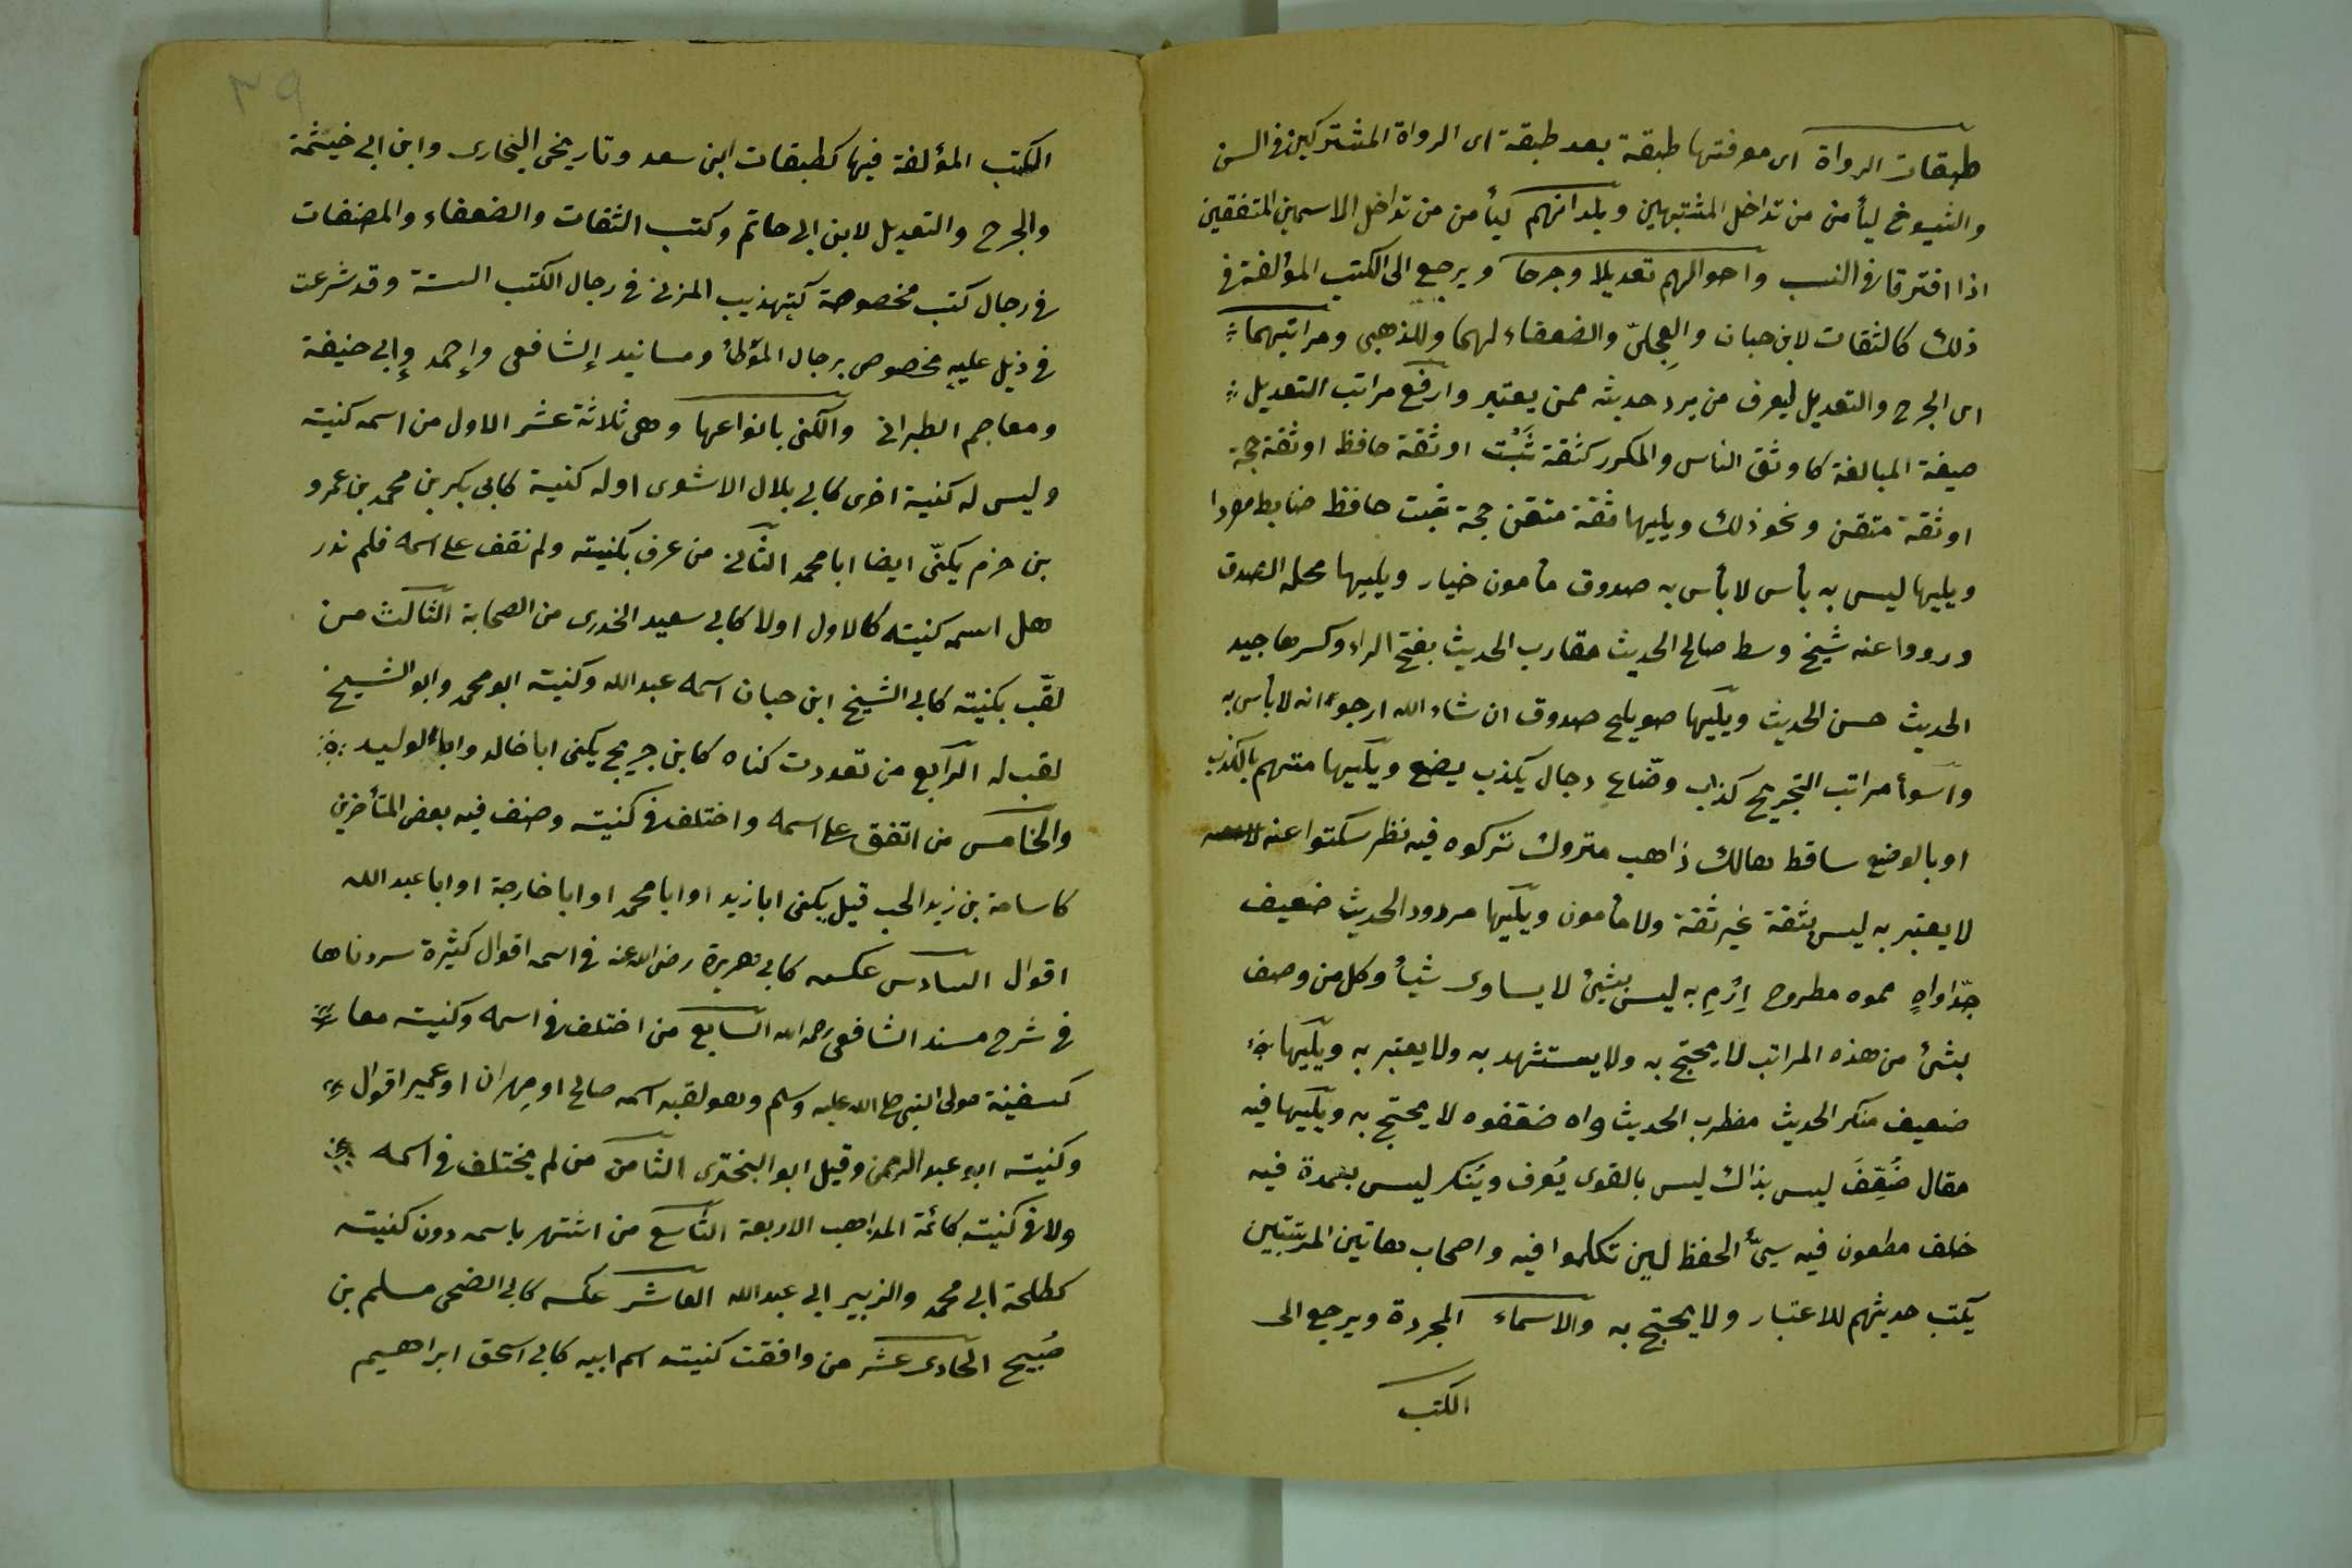 طبقات الرواة اى معرفتها طبقة بعد طبقة اى الرواة المشتركين فى السن
والشيوخ ليأمن من تداخل المشتبهين وبلدانهم ليأمن من تداخل الاسمين المتفقين
اذا افترقا فى النسب واحوالهم تعديلا وجرحا ويرجع الى الكتب المؤلفة فى
ذلك كالثقات لابن حبان والعِجلىّ والضعفاء لهما وللذهبى ومراتبهما
اى الجرح والتعديل ليعرف من يرد حديثه ممن يعتبر وارفع مراتب التعديل
صيغة المبالغة كاوثق الناس والمكرر كثقة ثَبْت او ثقة حافظ او ثقة حجة
او ثقة متقن ونحو ذلك ويليها ثقة متقن حجة ثبت حافظ ضابط مفردا
ويليها ليس به بأس لا بأس به صدوق مأمون خيار ويليها محله الصدق
ورووا عنه شيخ وسط صالح الحديث مقارب الحديث بفتح الراء وكسرها جيد
الحديث حسن الحديث ويليها صويلح صدوق ان شاء الله ارجو انه لا بأس به
واسوأ مراتب التجريح كذاب وضّاع دجال يكذب يضع ويليها متهم بالكذب
او بالوضع ساقط هالك ذاهب متروك تركوه فيه نظر سكتوا عنه
لا يعتبر به ليس بثقة غير ثقة ولا مأمون ويليها مردود الحديث ضعيف
جدّا واهٍ مموه مطروح اِرْمِ به ليس بشئ لا يساوى شيأ وكل من وصف
بشئ من هذه المراتب لا يحتج به ولا يستشهد به ولا يعتبر به ويليها
ضعيف منكر الحديث مضطرب الحديث واه ضعفوه لا يحتج به ويليها فيه
مقال ضُعِّفَ ليس بذاك ليس بالقوى يُعرف ويُنكر ليس بعمدة فيه
خلف مطعون فيه سيئ الحفظ لين تكلموا فيه واصحاب هاتين المرتبتين
يكتب حديثهم للاعتبار ولا يحتج به والاسماء المجردة ويرجع الى
الكتب
٣٩
الكتب المؤلفة فيها كطبقات ابن سعد وتاريخى البخارى وابن ابى خيثمة
والجرح والتعديل لابن ابى حاتم وكتب الثقات والضعفاء والمصنفات
فى رجال كتب مخصوصة كتهذيب المزنى فى رجال الكتب الستة وقد شرعت
فى ذيل عليه مخصوص برجال المؤطأ ومسانيد الشافعى واحمد وابى حنيفة
ومعاجم الطبرانى والكنى بانواعها وهى ثلاثة عشر الاول من اسمه كنيته
وليس له كنية اخرى كابى بلال الاشعرى او له كنية كابى بكر بن محمد بن عمرو
بن حزم يكنّى ايضا ابا محمد الثانى من عرف بكنيته ولم نقف على اسمه فلم ندر
هل اسمه كنيته كالاول اولا كابى سعيد الخدرى من الصحابة الثالث من
لقّب بكنيته كابى الشيخ ابن حبان اسمه عبدالله وكنيته ابو محمد وابو الشيخ
لقب له الرابع من تعددت كناه كابن جريج يكنى ابا خالد وابا الوليد
والخامس من اتفق على اسمه واختلف فى كنيته وصنف فيه بعض المتأخرين
كاسامة بن زيد الحب قيل يكنى ابا زيد او ابا محمد او ابا خارجة او ابا عبد الله
اقوال السادس عكسه كابى هريرة رضى الله عنه فى اسمه اقوال كثيرة سردناها
فى شرح مسند الشافعى رحمه الله السابع من اختلف فى اسمه وكنيته معا
كسفينة مولى النبى صلى الله عليه وسلم وهو لقبه اسمه صالح او مهران او عمير اقوال
وكنيته ابو عبد الرحمن وقيل ابو البخترى الثامن من لم يختلف فى اسمه
ولا فى كنيته كائمة المذاهب الاربعة التاسع من اشتهر باسمه دون كنيته
كطلحة ابى محمد والزبير ابى عبد الله العاشر عكسه كابى الضحى مسلم بن
صُبيح الحادى عشر من وافقت كنيته اسم ابيه كابى اسحق ابراهيم